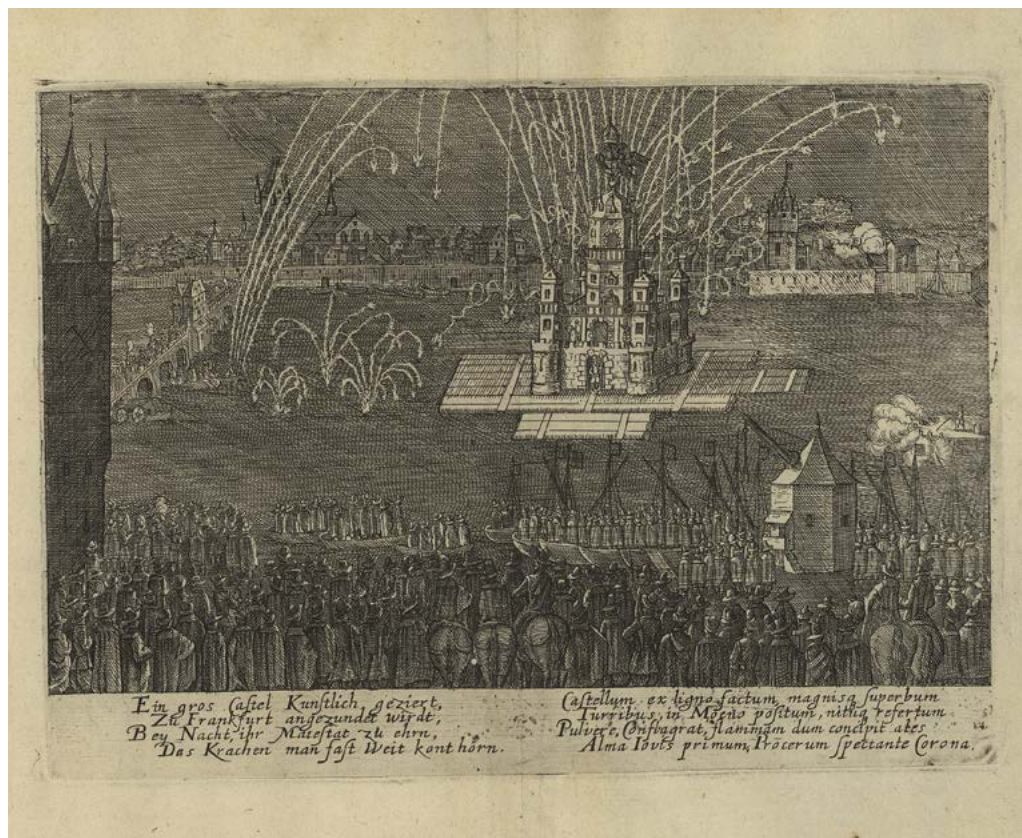 Ein gros Castel Kunstlich geziert,
Zu Frankfurt angezundet wirdt,
Bey Nacht, ihr Maiestat zu ehrn,
Das Krachen man fast Weit kont hörn.
Castellum ex ligno factum, magnisq superbum
Turribus, in Moeno positum, nitriq refertum
Pulvere, Conflagrat, flammam dum concipit ales
Alma Iovis primum, Procerum spectante Corona.